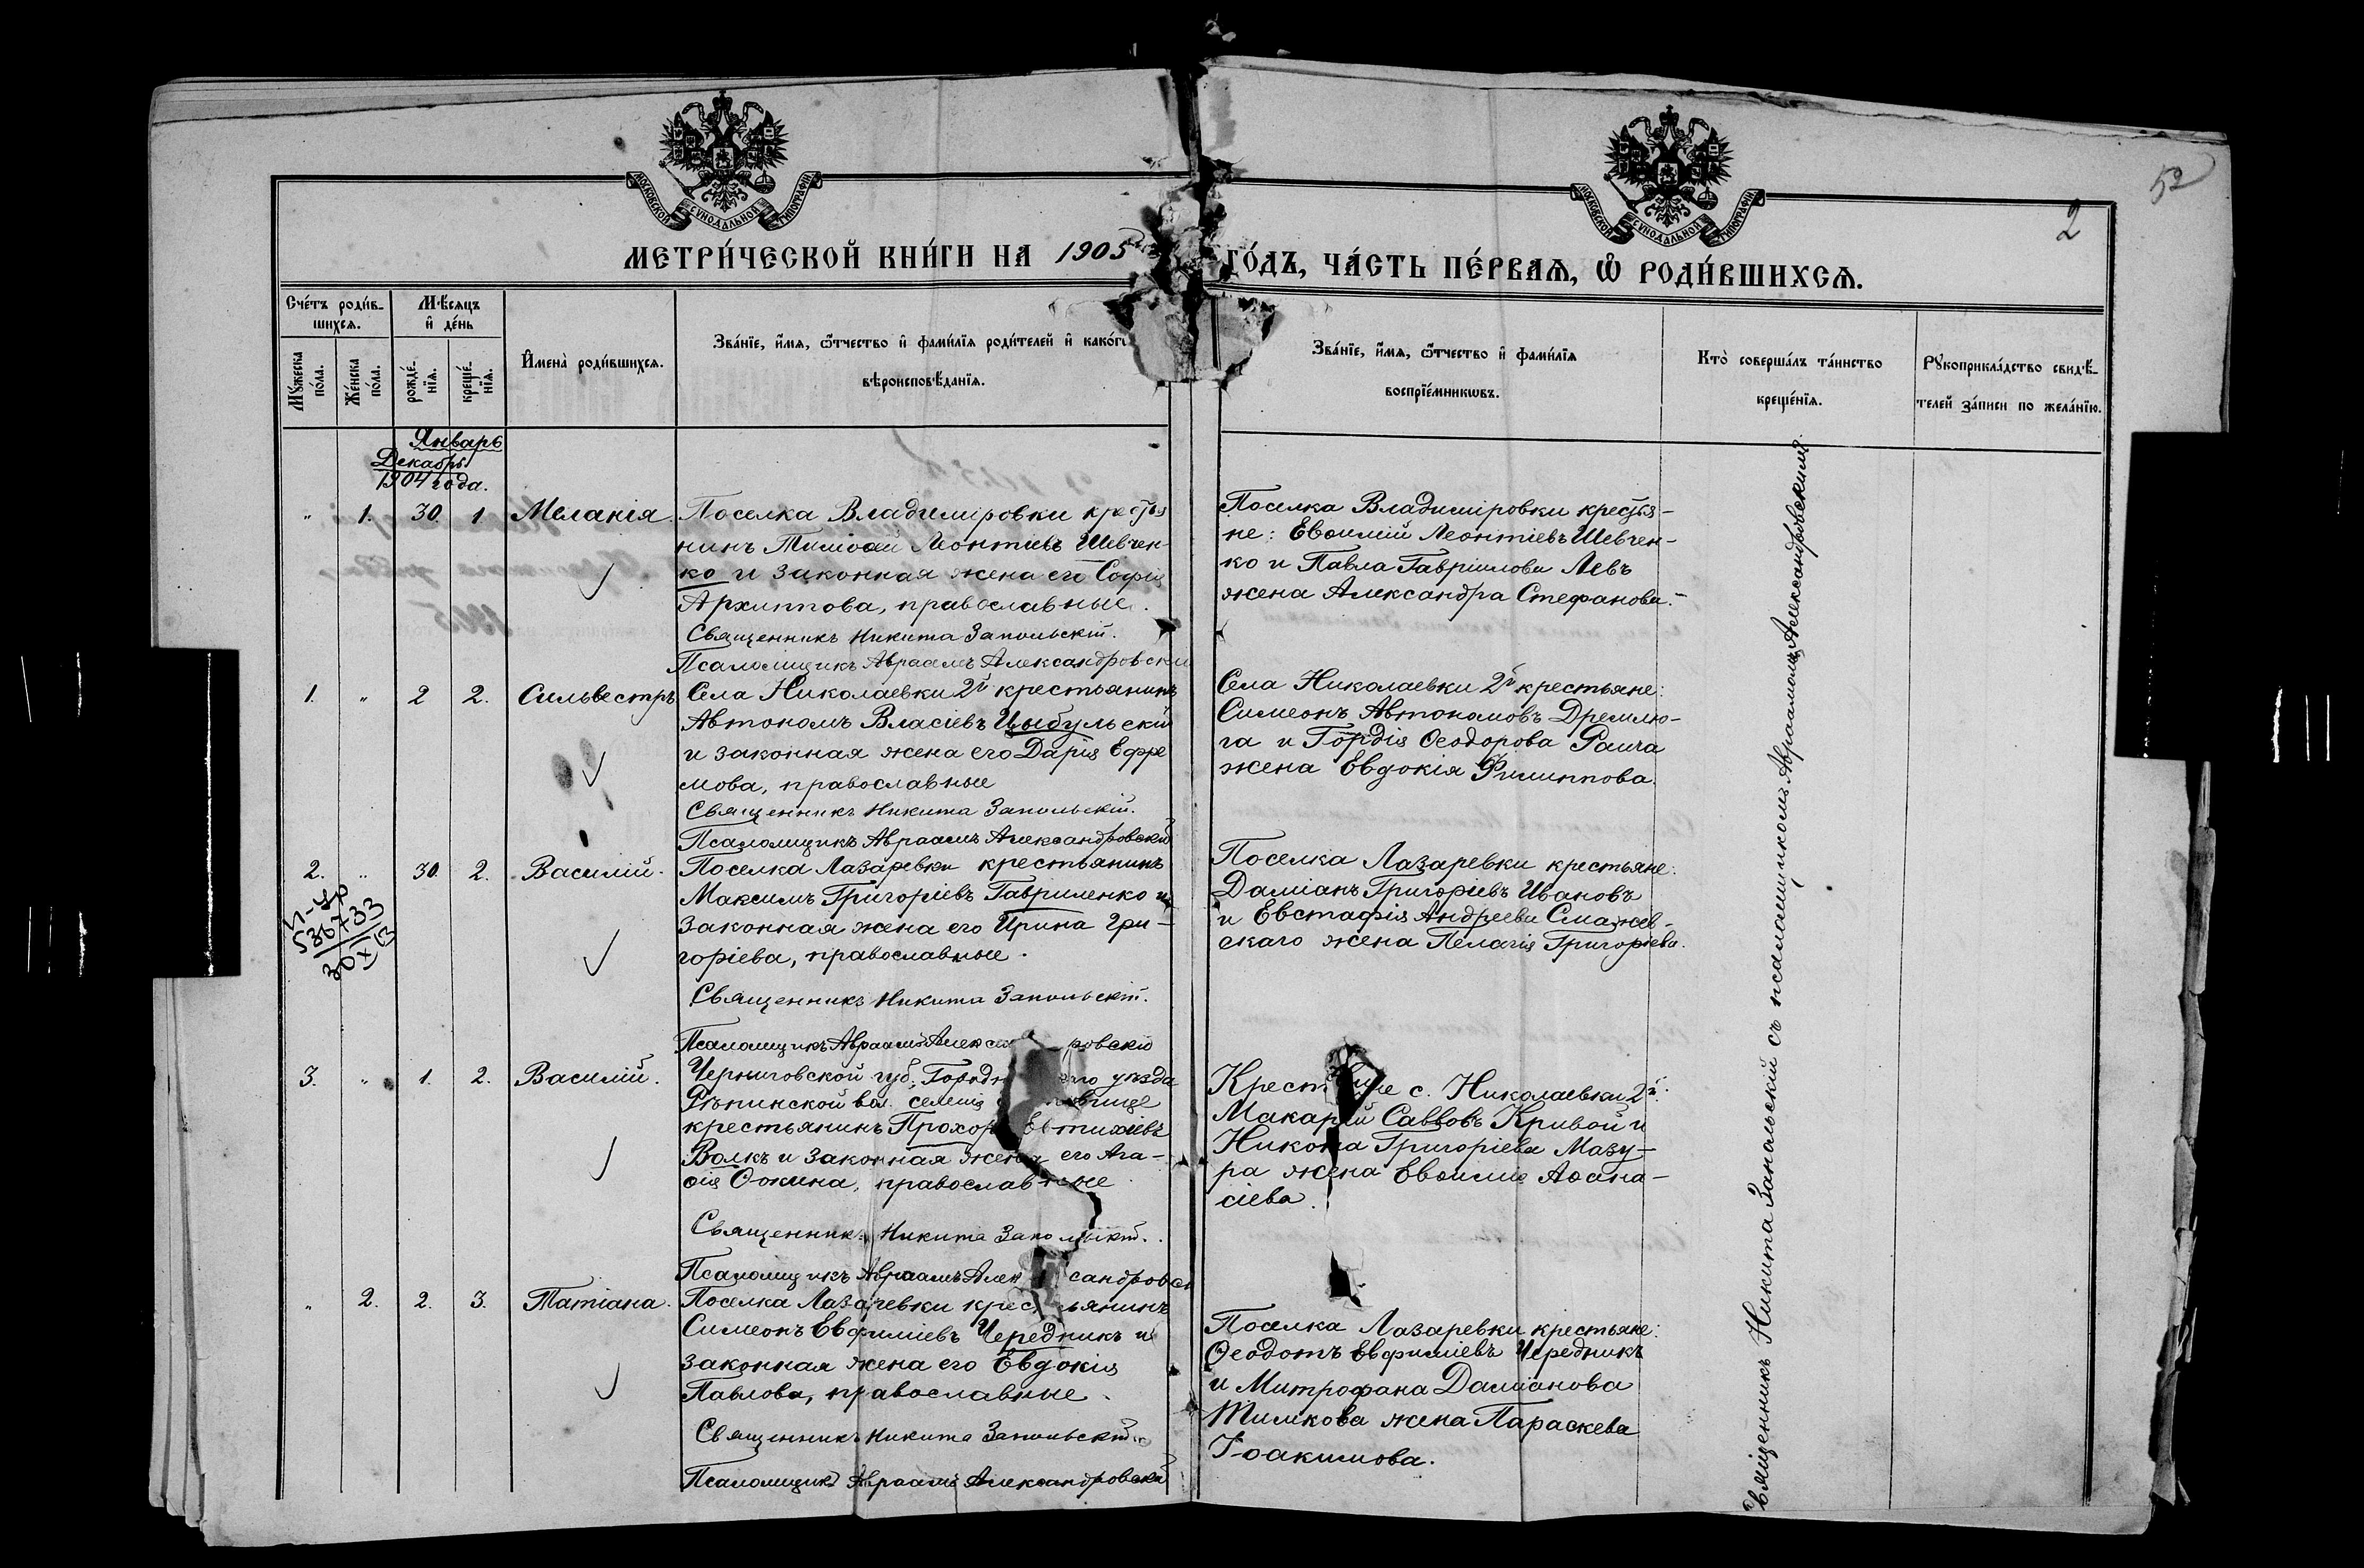 МОСКОВСКОЙ СУНОДАЛЬНОЙ ТИПОГРАФІИ
МОСКОВСКОЙ СУНОДАЛЬНОЙ ТИПОГРАФІИ
52
2
МЕТРИ́ЧЕСКОЙ КНИ́ГИ НА 1905 ГО́ДЪ, ЧА́СТЬ ПЕ́РВАѦ, Ѡ҆ РОДИ́ВШИХСѦ.
Сче́тъ роди́в-
шихсѧ.
Мꙋ́жеска по́ла.
Же́нска по́ла.
Мѣ́сяцъ
и҆ де́нь
рожде́-
нїѧ.
креще́-
нїѧ.
И҆мена̀ роди́вшихсѧ.
Зва́нїе, и҆́мѧ, ѻ҆́тчество и҆ фами́лїѧ роди́телей и҆ како́г
вѣроисповѣ́данїѧ.
Зва́нїе, и҆́мѧ, ѻ҆́тчество и҆ фами́лїѧ
воспрїе́мникѡвъ.
Кто̀ соверша́лъ та́инство
креще́нїѧ.
Рꙋкоприкла́дство свидѣ́-
телей за́писи по жела́нїю.
Январь
Декабрь
1904 года.
" 1. 30. 1 Меланія.
Поселка Владиміровки крестья
нинъ Тимоѳей Леонтіевъ Шевчен-
ко и законная жена его Софія
Архиппова, православные.
Священникъ Никита Запольскій.
Псаломщикъ Авраамъ Александровскій
Поселка Владиміровки крестья-
не: Евѳимій Леонтіевъ Шевчен-
ко и Павла Гавріилова Левъ
жена Александра Стефанова.
1. " 2 2. Сильвестръ.
Села Николаевки 2й крестьянинъ
Автономъ Власіевъ Цыбульскій
и законная жена его Дарія Ефре
мова, православные
Священникъ Никита Запольскій.
Псаломщикъ Авраамъ Александровскій
Села Николаевки 2й крестьяне:
Симеонъ Автономовъ Дремлю-
га и Гордія Ѳеодорова
жена Евдокія Филиппова.
2. " 30. 2. Василій.
536733
30
Поселка Лазаревки крестьянинъ
Максимъ Григоріевъ Гавриленко и
законная жена его Ирина Гри-
горіева, православные.
Священникъ Никита Запольскій.
Псаломщикъ Авраамъ Алекса ровскій
Поселка Лазаревки крестьяне:
Даміанъ Григоріевъ Ивановъ
и Евстафія Андреева Смажев-
скаго жена Пелагія Григорьева.
3. " 1. 2. Василій.
Черниговской губ. Городн его уѣзда
Рѣпинской вол. селенія вище
крестьянинъ Прохоръ Евтихіевъ
Волкъ и законная жена его Ага-
ѳія Ѳокина, православные
Священникъ Никита Запольскій.
Псаломщикъ Авраамъ Александровск
Крестьяне с. Николаевки 2й:
Макарій Саввовъ Кривой и
Никона Григоріева Мазу-
ра жена Евѳимія Аѳана-
сіева.
" 2. 2. 3. Татіана.
Поселка Лазаревки крестьянинъ
Симеонъ Евфиміевъ Чередникъ и
законная жена его Евдокія
Павлова, православные.
Священникъ Никита Запольскій.
Псаломщикъ Авраамъ Александровскій
Поселка Лазаревки крестьяне:
Ѳеодотъ Евфиміевъ Чередникъ
и Митрофана Даміанова
Тимкова жена Параскева
Іоакимова.
Священникъ Никита Запольскій съ псаломщикомъ Авраамомъ Александровскимъ.